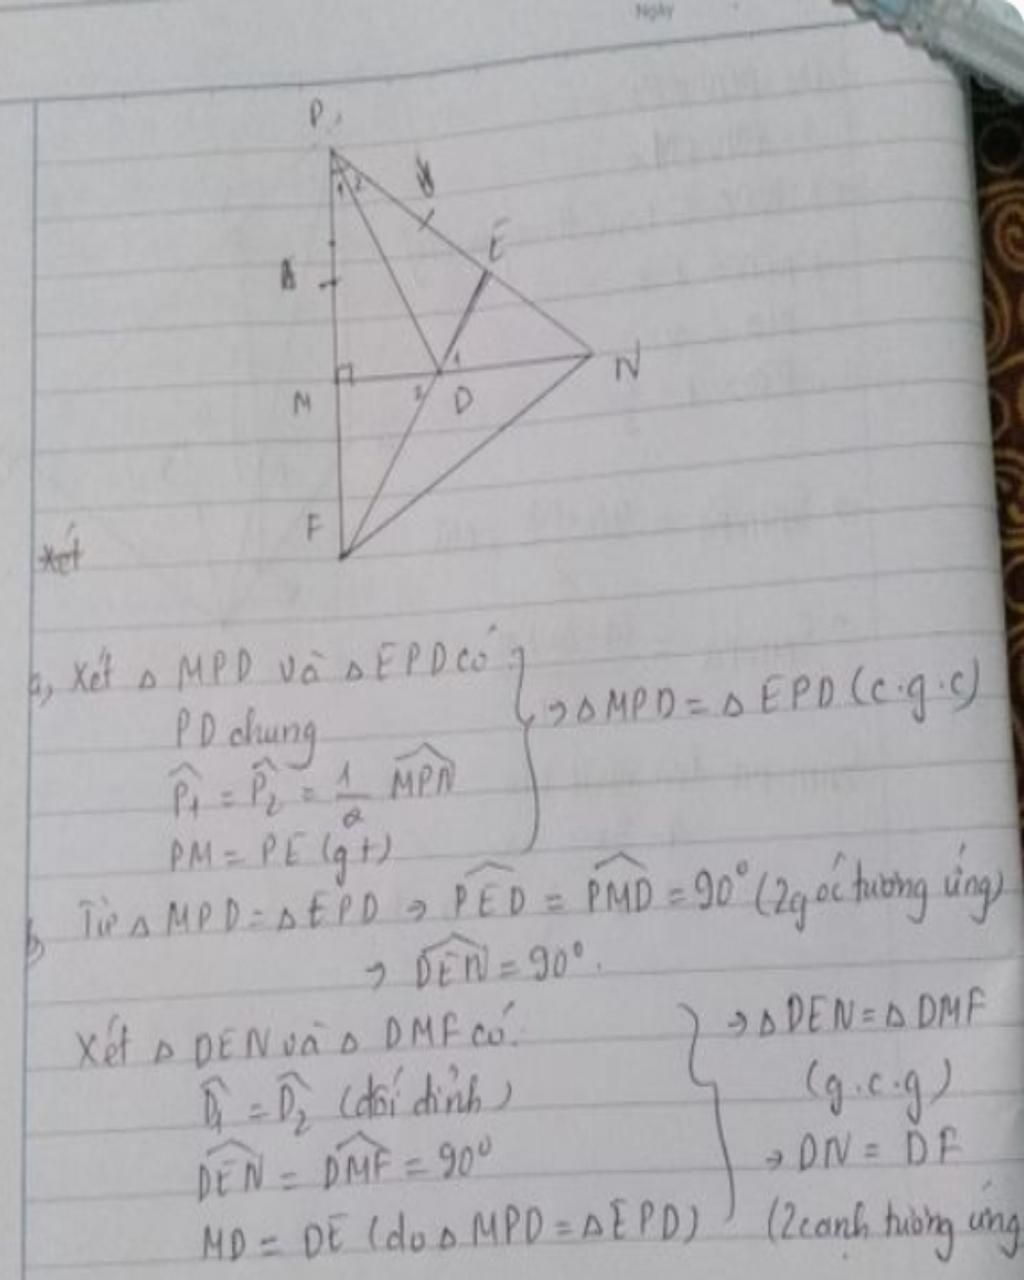 Ngày
P
1 2
E
M
1
2
D
N
F
xét
a, Xét Δ MPD và Δ EPD có
PD chung
P̂₁ = P̂₂ = 1/2 MPN̂
PM = PE (gt)
→ Δ MPD = Δ EPD (c.g.c)
b, Từ Δ MPD = Δ EPD → PED̂ = PMD̂ = 90° (2 góc tương ứng)
→ DEN̂ = 90°.
Xét Δ DEN và Δ DMF có:
D̂₁ = D̂₂ (đối đỉnh)
DEN̂ = DMF̂ = 90°
MD = DE (do Δ MPD = Δ EPD)
→ Δ DEN = Δ DMF
(g.c.g)
→ DN = DF
(2 cạnh tương ứng